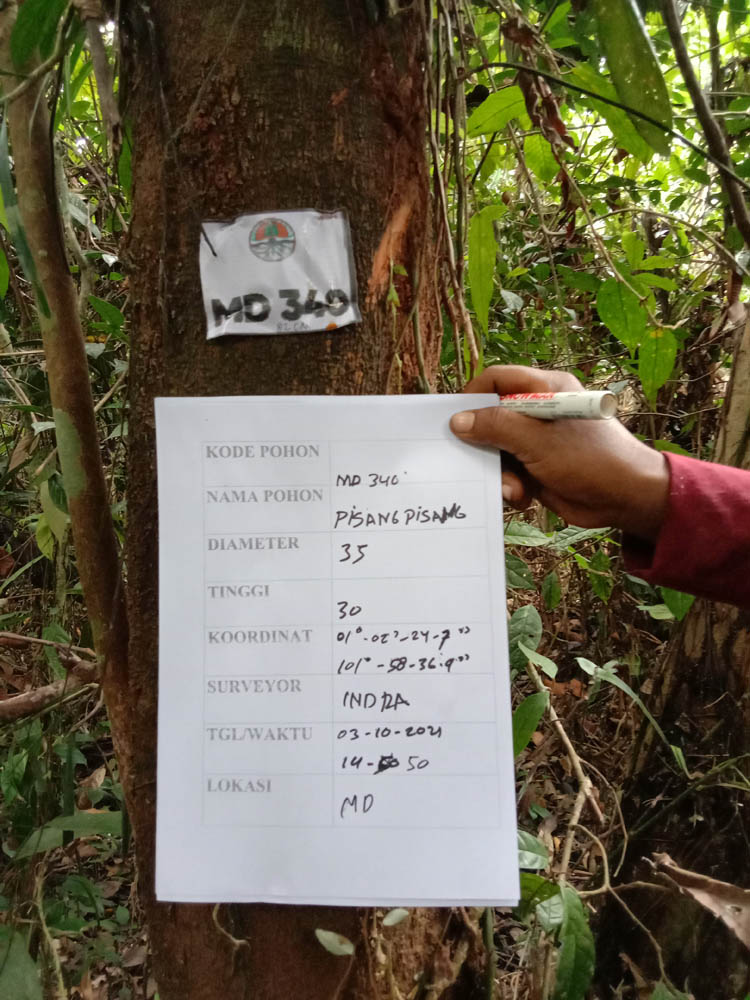 MD 340
SNOWMAN
KODE POHON MD 340
NAMA POHON PISANG PISANG
DIAMETER 35
TINGGI 30
KOORDINAT 01°-02'-24-7"
101°-58-36.9"
SURVEYOR INDRA
TGL/WAKTU 03-10-2021
14-50
LOKASI MD